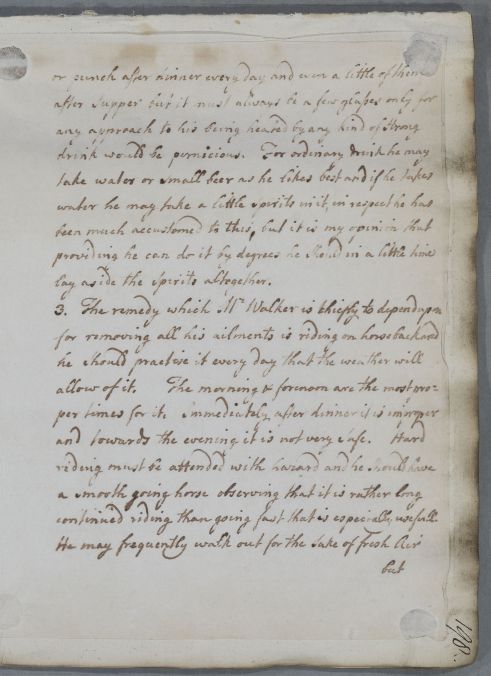 or punch after dinner every day and even a little of them
after supper but it must always be a few glasses only for
any approach to his being heated by any kind of strong
drink would be pernicious. For ordinary drink he may
take water or small beer as he likes best and if he takes
water he may take a little spirits in it, in respect he has
been much accustomed to this, but it is my opinion that
providing he can do it by degrees he should in a little time
lay aside the spirits altogether.
3. The remedy which Mr Walker is chiefly to depend upon
for removing all his ailments is riding on horseback and
he should practise it every day that the weather will
allow of it. The morning & forenoon are the most pro=
per times for it. immediately after dinner it is improper
and towards the evening it is not very safe. Hard
riding must be attended with hazard and he should have
a smooth going horse observing that it is rather long
continued riding than going fast that is especially usefull.
He may frequently walk out for the sake of fresh Air
but